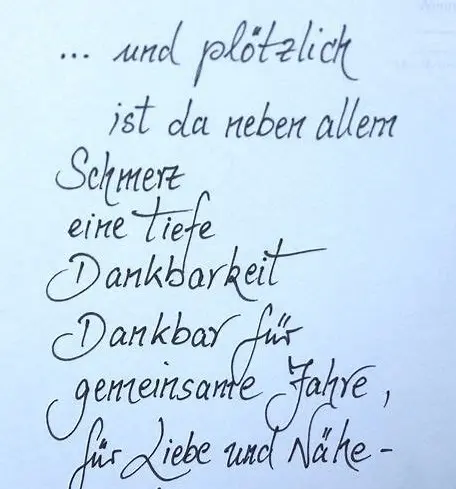 ... und plötzlich
ist da neben allem
Schmerz
eine tiefe
Dankbarkeit
Dankbar für
gemeinsame Jahre,
für Liebe und Nähe -